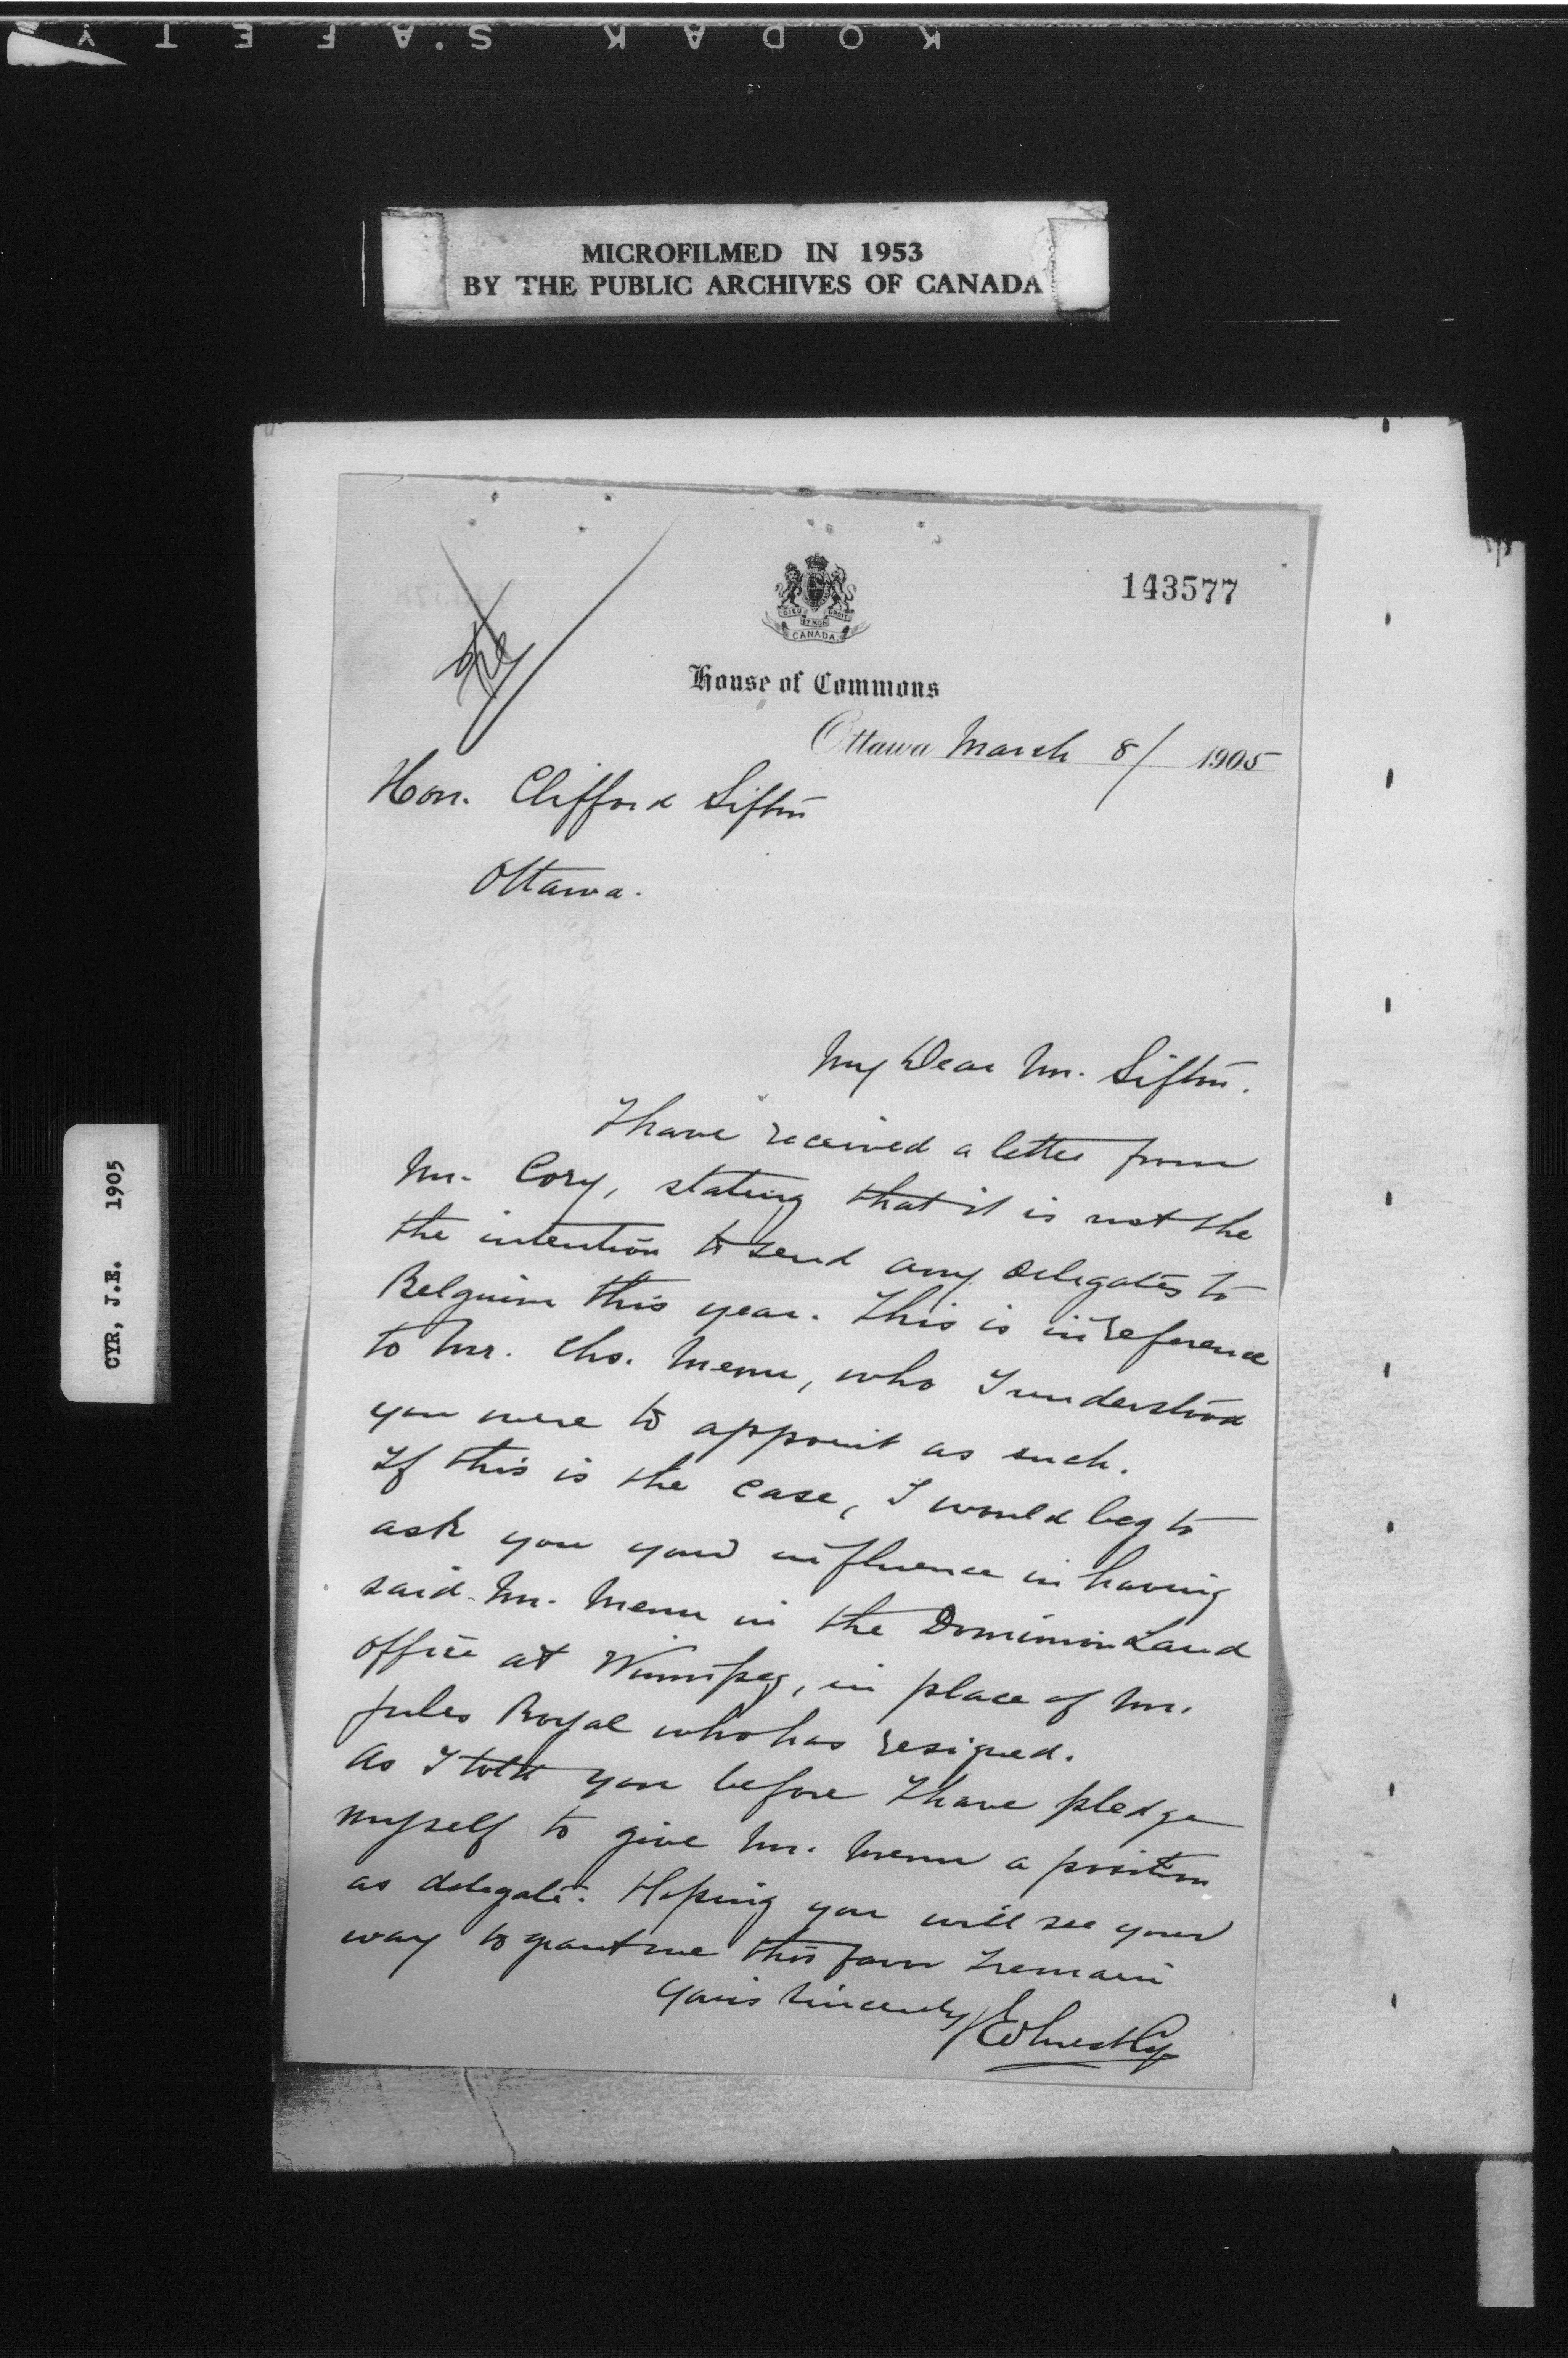 KODAK SAFETY
MICROFILMED IN 1953
BY THE PUBLIC ARCHIVES OF CANADA
CYR, J.E. 1905
143577
DIEU ET MON DROIT
CANADA
House of Commons
Ottawa March 8/ 1905
Hon. Clifford Sifton
Ottawa.
My Dear Mr. Sifton.
I have received a letter from
Mr. Cory, stating that it is not the
the intention to send any delegates to
Belguim this year. This is in reference
to Mr. Chs. Menu, who I understood
you were to appoint as such.
If this is the case, I would beg to
ask you your influence in having
said Mr. Menu in the Dominion Land
office at Winnipeg, in place of Mr.
Jules Royal who has resigned.
As I told you before I have pledge
myself to give Mr. Menu a position
as delegate. Hoping you will see your
way to grant me this favor I remain
Yours Sincerely
J Ernest Cyr